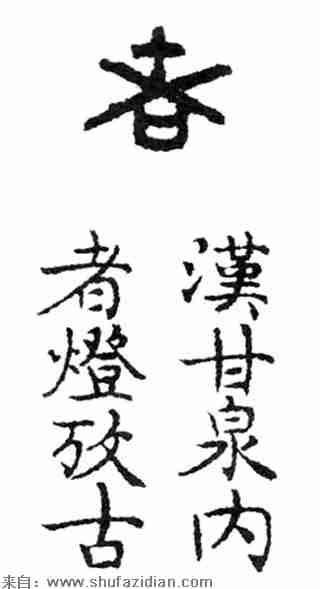 者
漢甘泉内
者燈攷古
来自：www.shufazidian.com